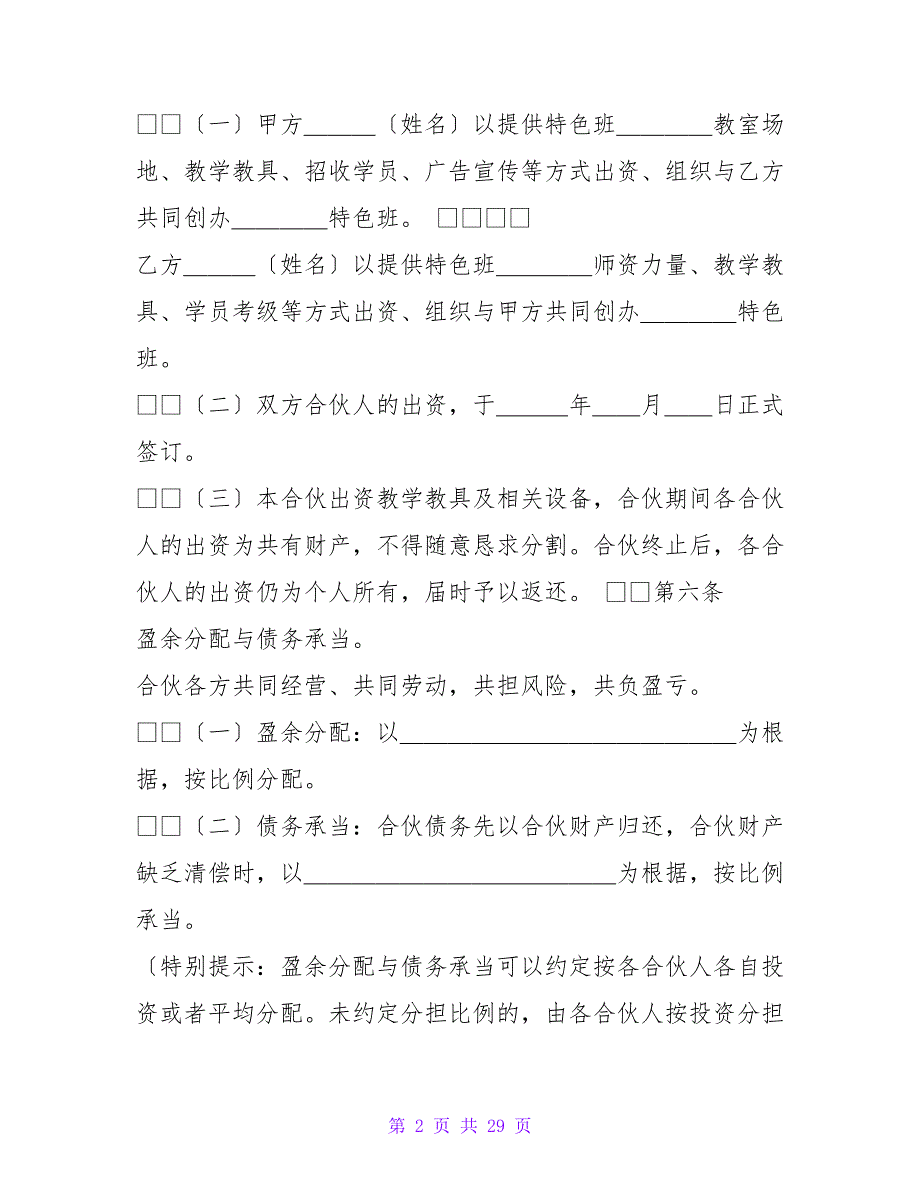 □□〔一〕甲方______〔姓名〕以提供特色班________教室场
地、教学教具、招收学员、广告宣传等方式出资、组织与乙方
共同创办________特色班。 □□□□
乙方______〔姓名〕以提供特色班________师资力量、教学教
具、学员考级等方式出资、组织与甲方共同创办________特色
班。
□□〔二〕双方合伙人的出资，于______年____月____日正式
签订。
□□〔三〕本合伙出资教学教具及相关设备，合伙期间各合伙
人的出资为共有财产，不得随意恳求分割。合伙终止后，各合
伙人的出资仍为个人所有，届时予以返还。 □□第六条
盈余分配与债务承当。
合伙各方共同经营、共同劳动，共担风险，共负盈亏。
□□〔一〕盈余分配：以____________________________为根
据，按比例分配。
□□〔二〕债务承当：合伙债务先以合伙财产归还，合伙财产
缺乏清偿时，以__________________________为根据，按比例
承当。
〔特别提示：盈余分配与债务承当可以约定按各合伙人各自投
资或者平均分配。未约定分担比例的，由各合伙人按投资分担
第 2 页 共 29 页